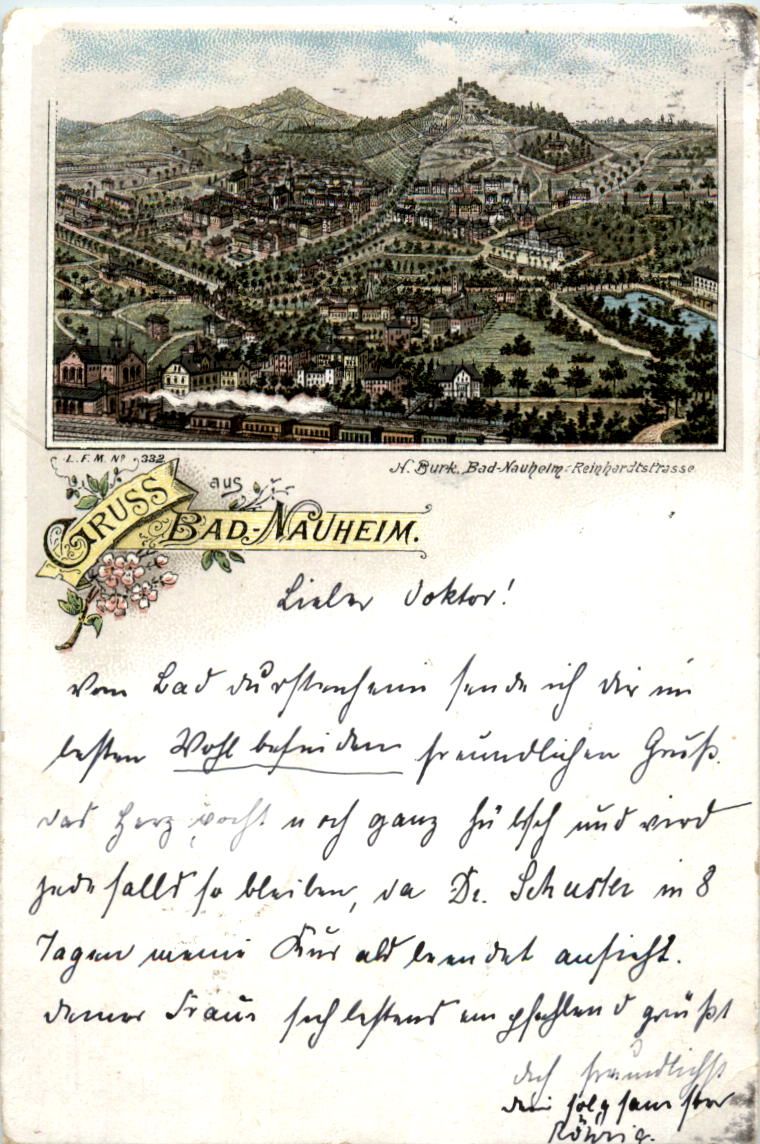 L. F. M. No 332.
N. Burk, Bad-Nauheim-Reinhardtstrasse
GRUSS aus BAD-NAUHEIM.
Lieber Doktor!
Vom Bad sende ich Dir im
besten Wohlbefinden freundlichen Gruß.
das Herz pocht noch ganz hübsch und wird
jedenfalls so bleiben, da Dr. Schuster in 8
Tagen meine Kur als beendet ansieht.
Deiner Frau sich bestens empfehlend grüßt
Dich freundlichst
Dein folgsamster